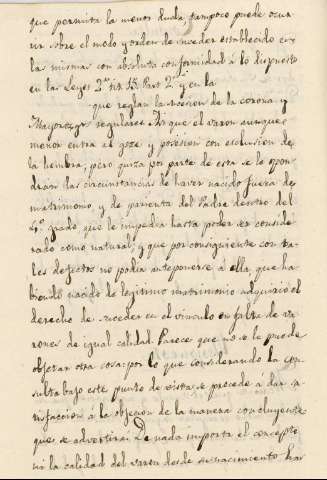 que permita la menor duda, tampoco puede ocu-
rrir sobre el modo y orden de suceder establecido en
las mismas con absoluta conformidad á lo dispuesto
en las Leyes 2.ª tit. 15. Part. 2.ª y en la
que reglan la sucesion de la corona y
Mayorazgos regulares. Asi que el varon aunque
menor entra al goze y posesion con esclusion de
la hembra; pero quiza por parte de esta se le opon-
drán las circunstancias de haver nacido fuera de
matrimonio, y de parienta del Padre dentro del
4.º grado que le impedia hasta poder ser conside-
rado como natural, y que por consiguiente con ta-
les defectos no podia anteponerse á ella, que ha-
biendo nacido de legitimo matrimonio adquirió el
derecho de suceder en el vinculo en falta de va-
rones de igual calidad. Parece que no se le puede
objetar otra cosa: por lo que considerando la con-
sulta bajo este punto de vista, se procede á dar sa-
tisfaccion á la objecion de la manera concluyente
que se advertirá. De nada importa el concepto
ni la calidad del varon desde su nacimiento has